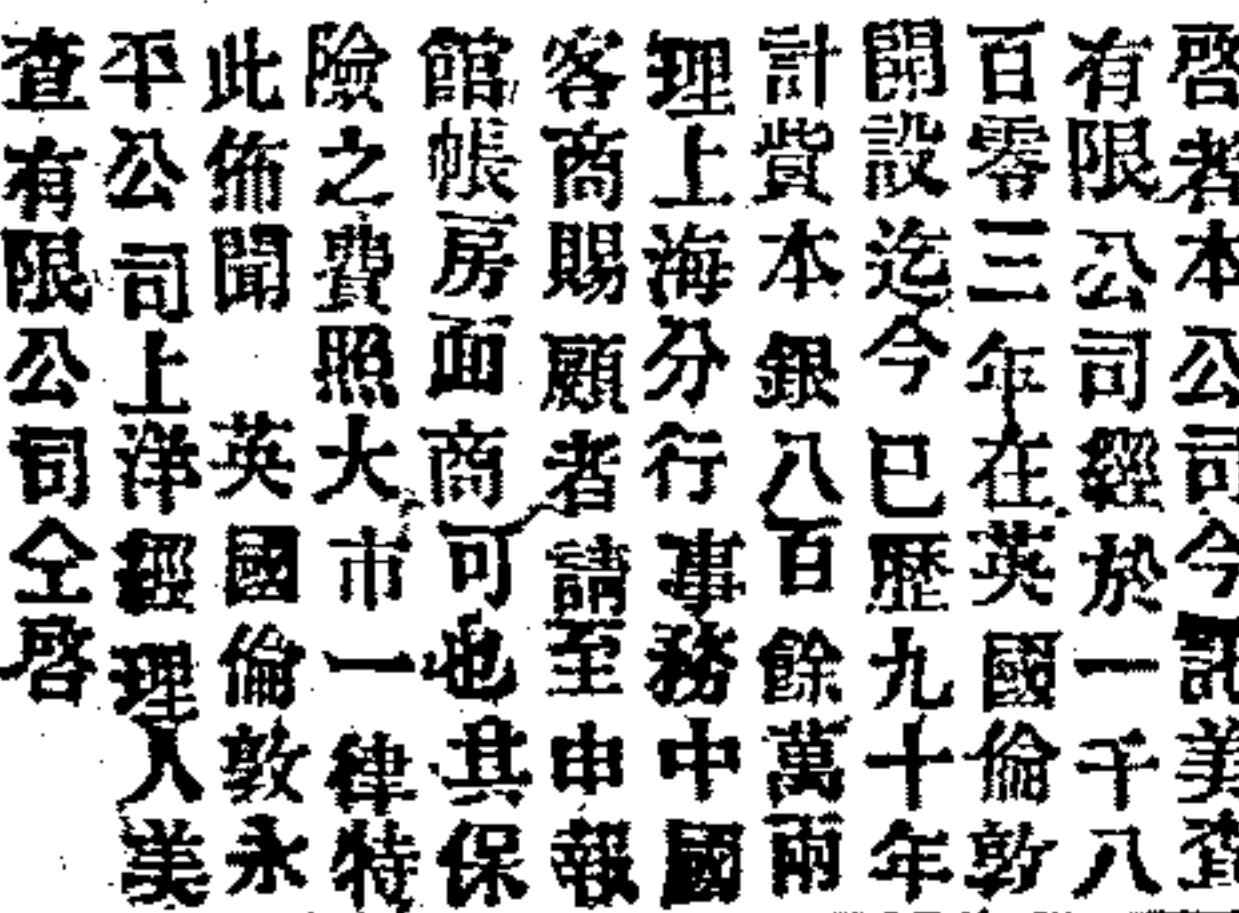 啓者本公司今託美查
有限公司經於一千八
百零三年在英國倫敦
開設迄今已歷九十年
計貲本銀八百餘萬兩
理上海分行事務中國
客商賜顧者請至申報
館帳房面商可也其保
險之費照大市一律特
此佈聞 英國倫敦永
平公司上洋經理人美
查有限公司仝啓